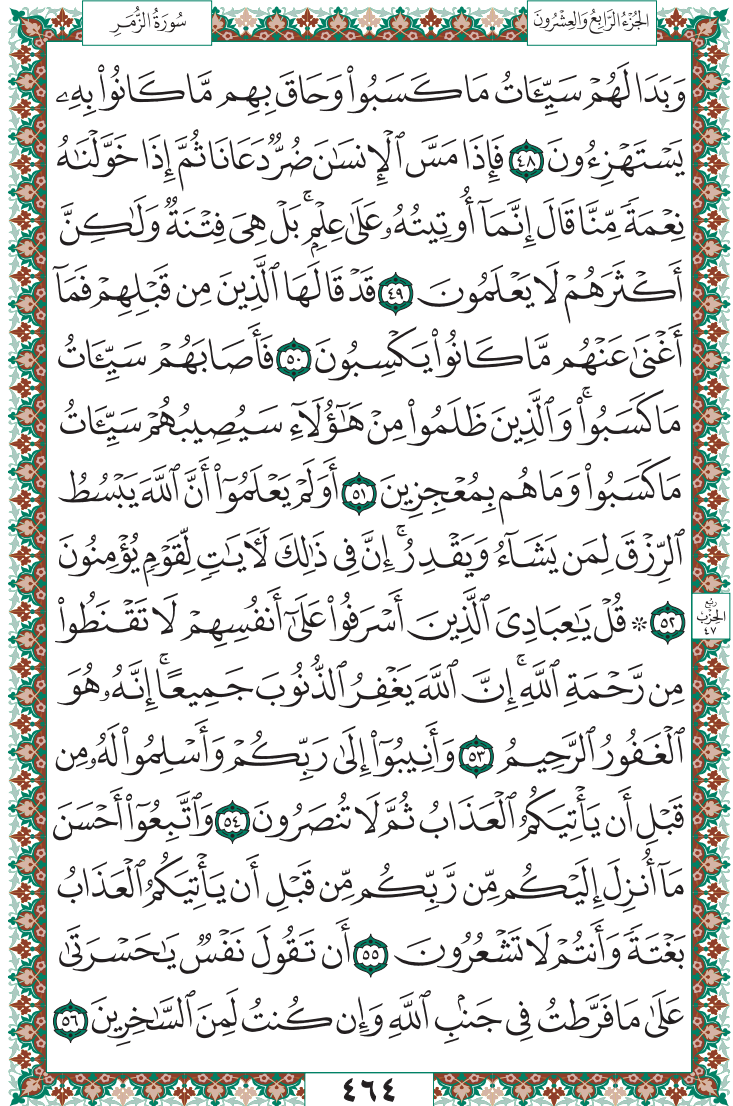 الجُزْءُ الرَّابِعُ وَالعِشْرُونَ
سُورَةُ الزُّمَرِ
وَبَدَا لَهُمْ سَيِّـَٔاتُ مَا كَسَبُوا۟ وَحَاقَ بِهِم مَّا كَانُوا۟ بِهِۦ
يَسْتَهْزِءُونَ ٤٨ فَإِذَا مَسَّ ٱلْإِنسَـٰنَ ضُرٌّ دَعَانَا ثُمَّ إِذَا خَوَّلْنَـٰهُ
نِعْمَةً مِّنَّا قَالَ إِنَّمَآ أُوتِيتُهُۥ عَلَىٰ عِلْمٍۭ ۚ بَلْ هِىَ فِتْنَةٌ وَلَـٰكِنَّ
أَكْثَرَهُمْ لَا يَعْلَمُونَ ٤٩ قَدْ قَالَهَا ٱلَّذِينَ مِن قَبْلِهِمْ فَمَآ
أَغْنَىٰ عَنْهُم مَّا كَانُوا۟ يَكْسِبُونَ ٥٠ فَأَصَابَهُمْ سَيِّـَٔاتُ
مَا كَسَبُوا۟ ۚ وَٱلَّذِينَ ظَلَمُوا۟ مِنْ هَـٰٓؤُلَآءِ سَيُصِيبُهُمْ سَيِّـَٔاتُ
مَا كَسَبُوا۟ وَمَا هُم بِمُعْجِزِينَ ٥١ أَوَلَمْ يَعْلَمُوٓا۟ أَنَّ ٱللَّهَ يَبْسُطُ
ٱلرِّزْقَ لِمَن يَشَآءُ وَيَقْدِرُ ۚ إِنَّ فِى ذَٰلِكَ لَـَٔايَـٰتٍ لِّقَوْمٍ يُؤْمِنُونَ
٥٢ ۞ قُلْ يَـٰعِبَادِىَ ٱلَّذِينَ أَسْرَفُوا۟ عَلَىٰٓ أَنفُسِهِمْ لَا تَقْنَطُوا۟
مِن رَّحْمَةِ ٱللَّهِ ۚ إِنَّ ٱللَّهَ يَغْفِرُ ٱلذُّنُوبَ جَمِيعًا ۚ إِنَّهُۥ هُوَ
ٱلْغَفُورُ ٱلرَّحِيمُ ٥٣ وَأَنِيبُوٓا۟ إِلَىٰ رَبِّكُمْ وَأَسْلِمُوا۟ لَهُۥ مِن
قَبْلِ أَن يَأْتِيَكُمُ ٱلْعَذَابُ ثُمَّ لَا تُنصَرُونَ ٥٤ وَٱتَّبِعُوٓا۟ أَحْسَنَ
مَآ أُنزِلَ إِلَيْكُم مِّن رَّبِّكُم مِّن قَبْلِ أَن يَأْتِيَكُمُ ٱلْعَذَابُ
بَغْتَةً وَأَنتُمْ لَا تَشْعُرُونَ ٥٥ أَن تَقُولَ نَفْسٌ يَـٰحَسْرَتَىٰ
عَلَىٰ مَا فَرَّطتُ فِى جَنۢبِ ٱللَّهِ وَإِن كُنتُ لَمِنَ ٱلسَّـٰخِرِينَ ٥٦
رُبْع
الحِزْب
٤٧
٤٦٤